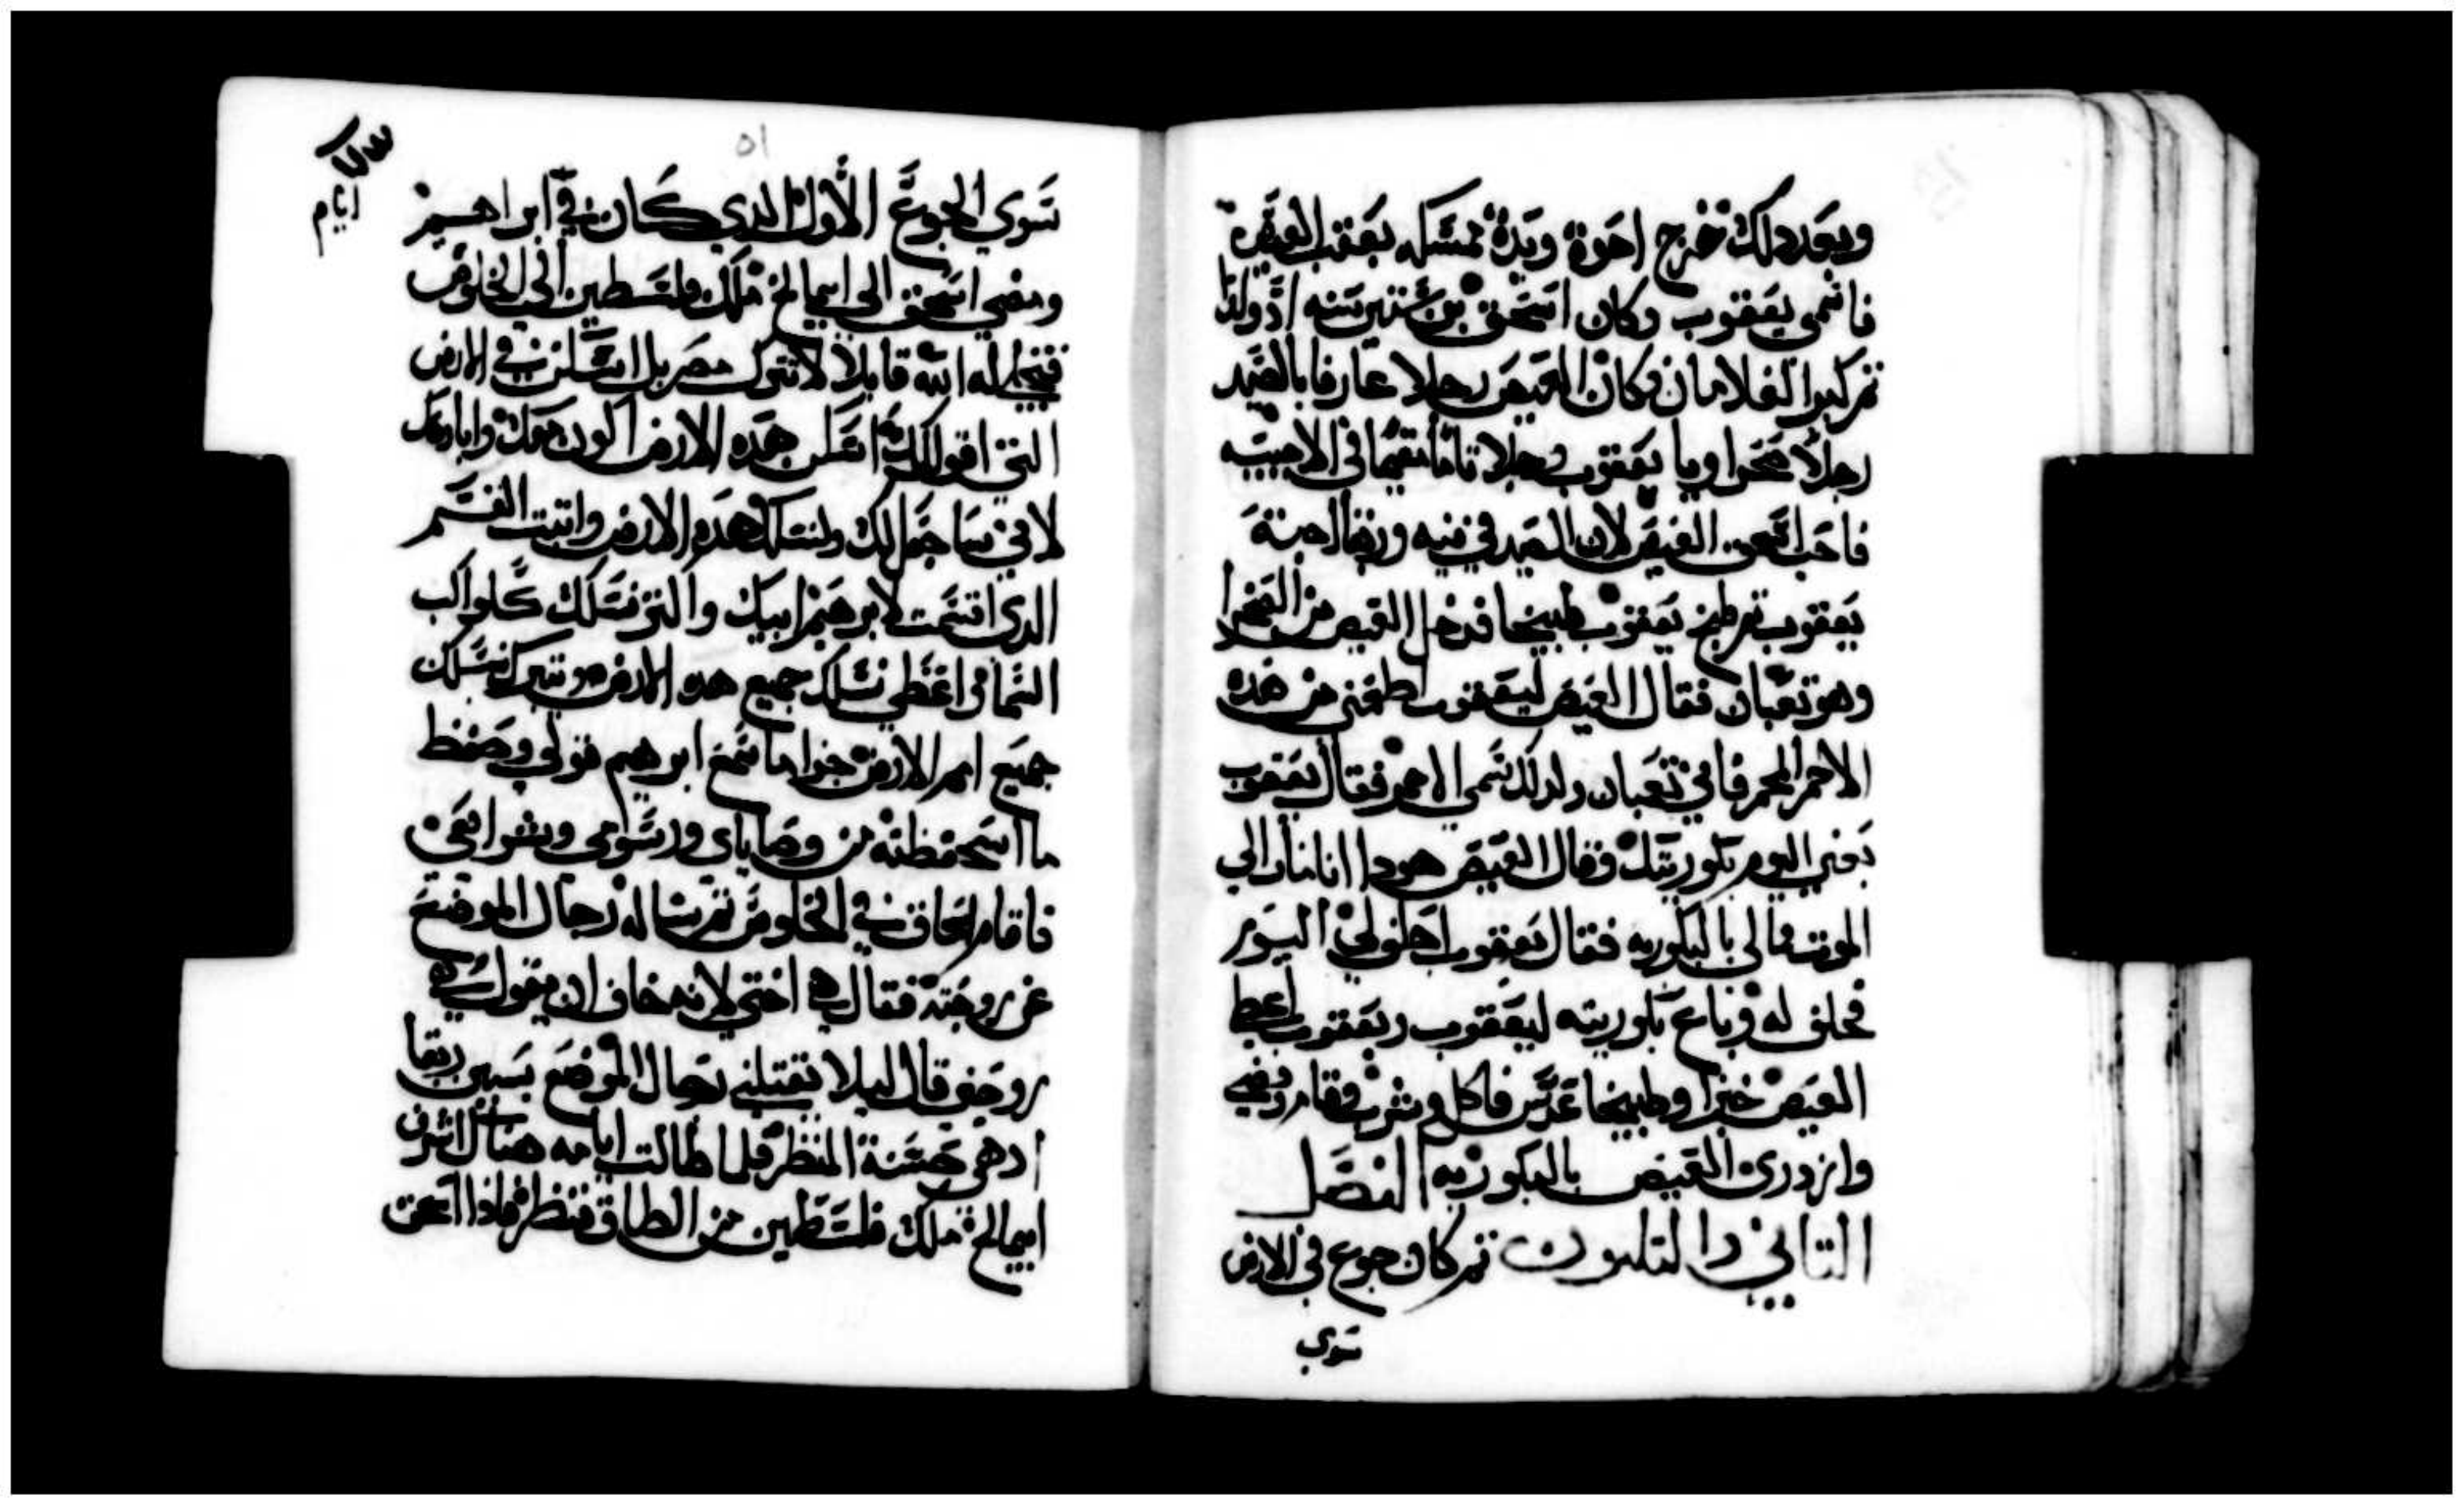 وبعد دلك خرج اخوة ويدة ممسكه بعقب العيص
فاسمى يعقوب وكان اسحق بن ستين سنه اد ولدا
تم كبرا الغلامان وكان العيص رجلا عارفا بالصيد
رجلا صحراويا يعقوب رجلا تاما مقيما في الاخبيه
فاحب اسحق العيص لان الصيد في فيه وربقا احبتة
يعقوب تم طبخ يعقوب طبيخا فدخل العيص من الصحرا
وهو تعبان فقال العيص ليعقوب اطعمني من هده
الاحمر المحمر فاني تعبان ولدلك سمي الاحمر فقال يعقوب
بعني اليوم بكوريتك وقال العيص هودا انا مار الي
الموت فما لي بالبكوريه فقال يعقوب احلف لي اليوم
فحلف له وباع بكوريته ليعقوب ويعقوب اعطى
العيص خبزا وطبيخا عدس فاكل وشرب وقام ومضي
وازدرى العيص بالبكوريه الفصل
التاني والتلتون تم كان جوع في الارض
سوي
٥١
ايام
سوي الجوع الاول الدي كان في ايام ابراهيم
ومضى اسحق الى ابيمالخ ملك فلسطين الى الخلوص
فتجلى له الله قايلا لا تنزل مصر بل اسكن في الارض
التي اقول لك اسكن هده الارض اكون معك واباركك
لاني ساجعل لك ولنسلك هده الارض واتبت القسم
الدي اقسمت لابرهيم ابيك واكتر نسلك ككواكب
السما واعطي نسلك جميع هده الارض ويتبرك بنسلك
جميع امم الارض جزا ما سمع ابرهيم قولي وحفظ
ما استحفظته من وصاياي ورسومي وشرايعي
فاقام اسحاق في الخلوص تم ساله رجال الموضع
عن زوجته فقال هي اختي لانه خاف ان يقول هي
زوجتي قال ليلا تقتلني رجال الموضع بسبب ربقا
اد هي حسنة المنظر فلما طالت ايامه هناك اشرف
ابيمالخ ملك فلسطين من الطاق فنظر فادا اسحق